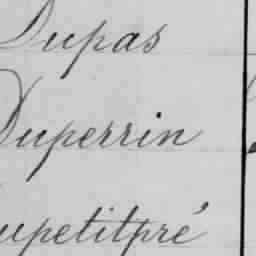 Dupas
Duperrin
Dupetitpré